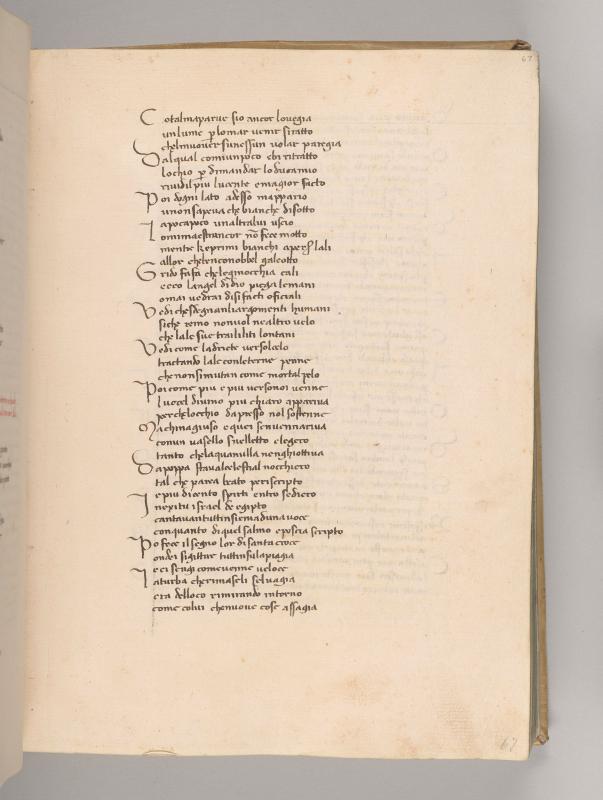 67
Cotalmaparue sio ancor louegia
unlume ꝑ lomar uenir siratto
chelmuouer sunessun uolar paregia
Dalqual comiunpoco ebi ritratto
lochio ꝑ dimandar lo duc mio
riuidil piu lucente emagior facto
Poi dogni lato adesso mappario
unonsapeua che bianche disotto
Iapocapoco unaltralui uscio
lomimaestrancor nō fece motto
mentre keprimi bianchi aperser lali
allor cheben conobbel galeotto
Grido fa fa cheleginocchia cali
ecco langel didio piega lemani
omai uedrai disifacti oficiali
Vedi chesdegnanliargomenti humani
siche remo nonuol nealtro uelo
che lale sue traliliti lontani
Vedi come ladricte uersolcelo
tractando lale conleterne penne
chenonsimutan come mortal pelo
Poi come piu e piu uersonoi uenne
luccel diuino piu chiaro appariua
perchelocchio dapresso nol sostenne
Machinagiuso equei senuenneariua
conun uasello snelletto elegero
tanto chelaquanulla nenghiottiua
Dapoppa staualcelestial nocchiero
tal che parea beato periscripto
Iepiu dicento spirti entro sediero
inexitu israel de egipto
cantauantuttinsiemaduna uoce
conquanto diquel salmo eposcia scripto
Po fece ilsegno lor disanta croce
ondei sigittar tuttinsulapiagia
Ieei sengi comeuenne ueloce
laturba cherimaseli seluagia
era delloco rimirando intorno
come colui chenuoue cose assagia
67